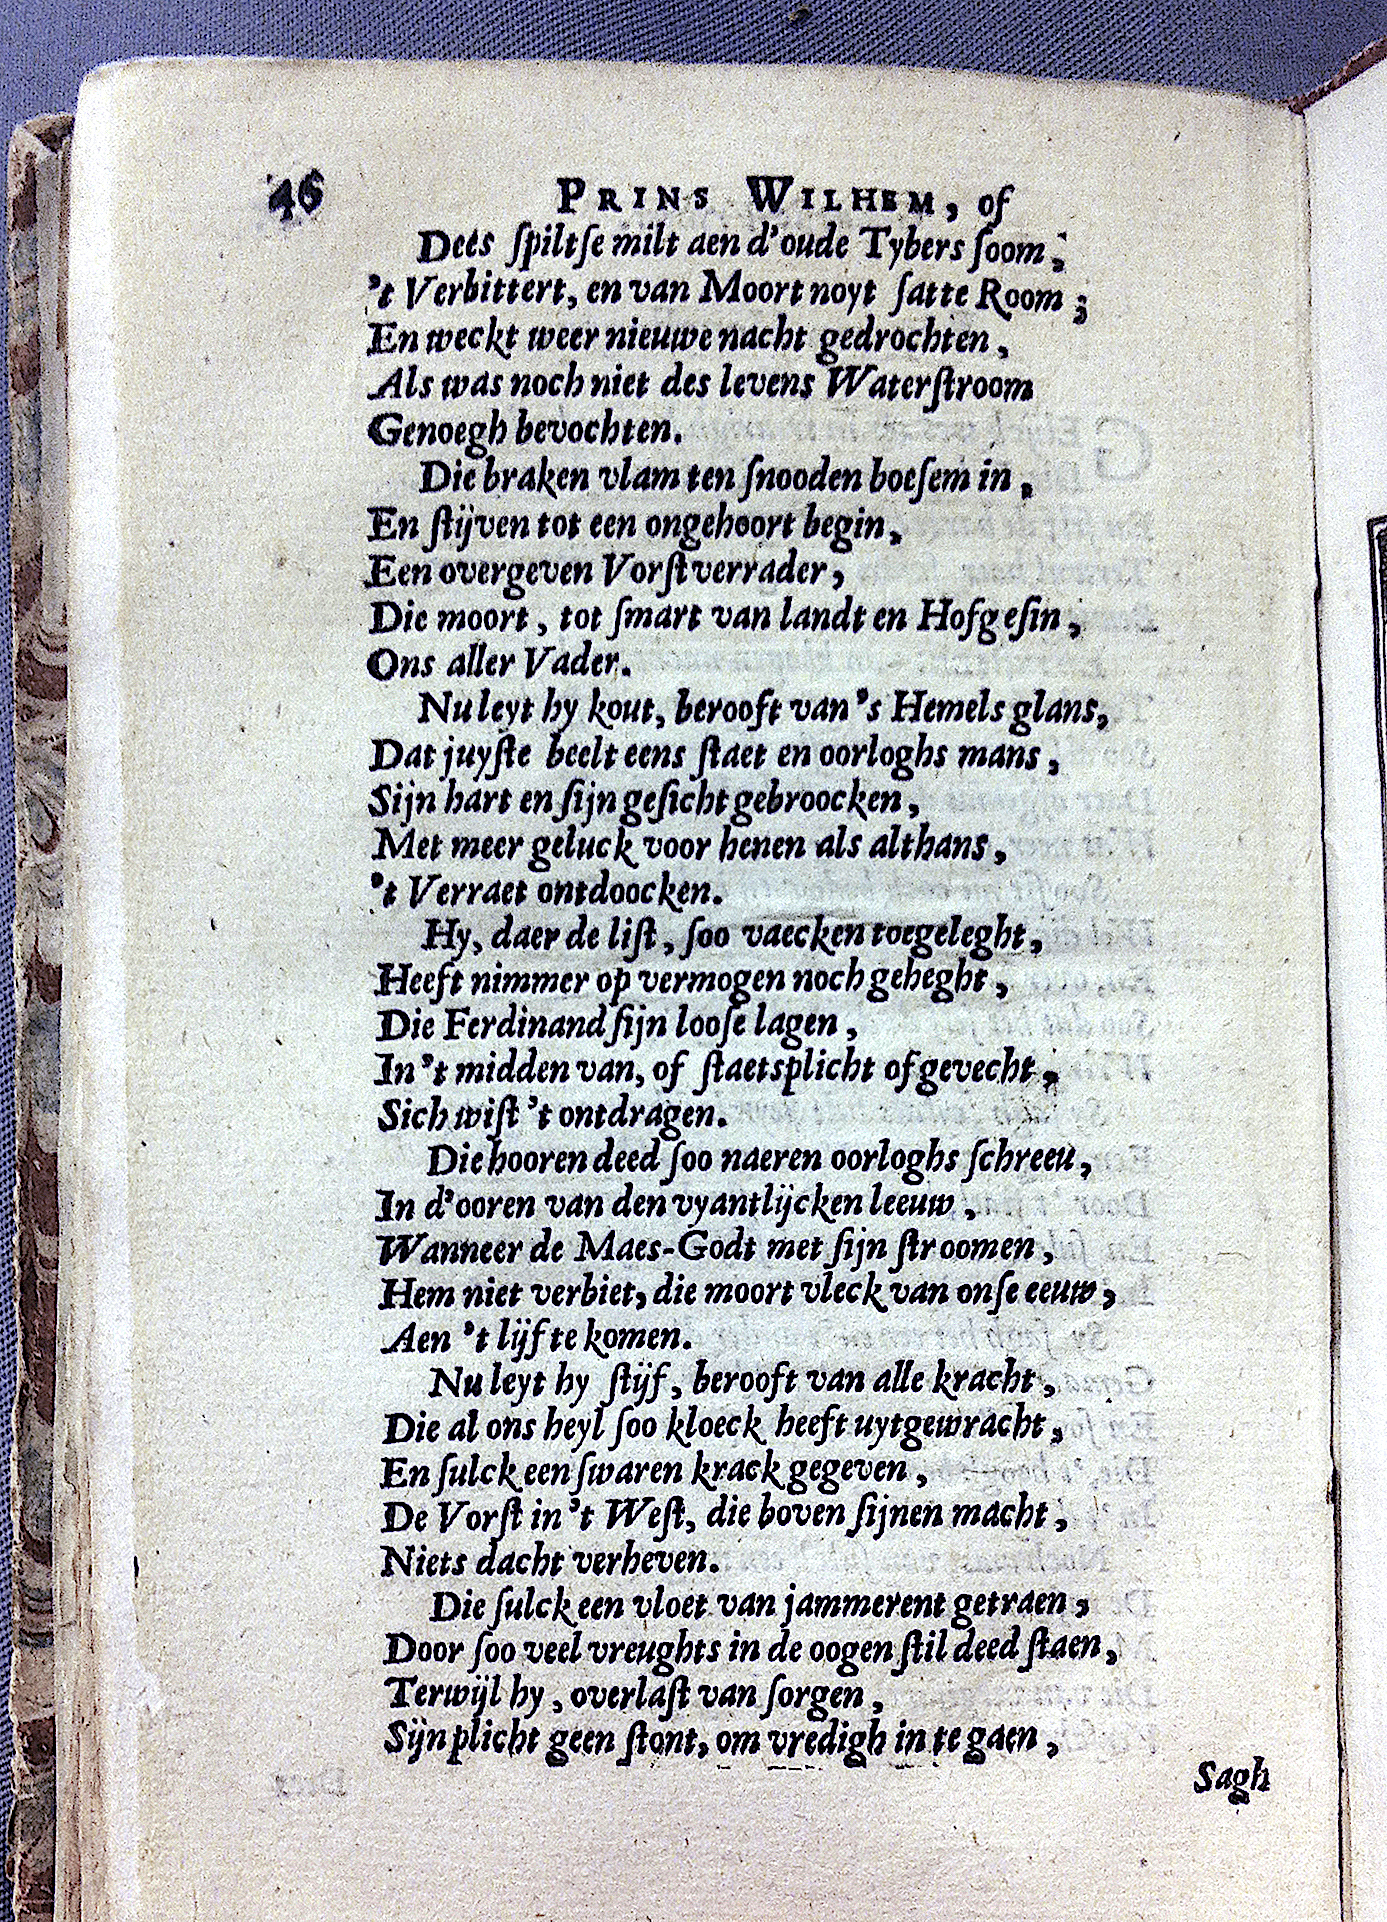 46 PRINS WILHEM, of
Dees ſpiltſe milt aen d'oude Tybers ſoom;
't Verbittert, en van Moort noyt ſatte Room;
En weckt weer nieuwe nacht gedrochten,
Als was noch niet des levens Waterſtroom
Genoegh bevochten.
Die braken vlam ten ſnooden boeſem in,
En ſtijven tot een ongehoort begin,
Een overgeven Vorſtverrader,
Die moort, tot ſmart van landt en Hofgeſin,
Ons aller Vader.
Nu leyt hy kout, berooft van 's Hemels glans,
Dat juyſte beelt eens ſtaet en oorloghs mans,
Sijn hart en ſijn geſicht gebroocken,
Met meer geluck voor henen als althans,
't Verraet ontdoocken.
Hy, daer de liſt, ſoo vaecken toegeleght,
Heeft nimmer op vermogen noch geheght,
Die Ferdinand ſijn looſe lagen,
In 't midden van, of ſtaetsplicht of gevecht,
Sich wiſt 't ontdragen.
Die hooren deed ſoo naeren oorloghs ſchreeu,
In d'ooren van den vyantlijcken leeuw,
Wanneer de Maes-Godt met ſijn ſtroomen,
Hem niet verbiet, die moort vleck van onſe eeuw,
Aen 't lijf te komen.
Nu leyt hy ſtijf, berooft van alle kracht,
Die al ons heyl ſoo kloeck heeft uytgewracht,
En ſulck een ſwaren krack gegeven,
De Vorſt in 't Weſt, die boven ſijnen macht,
Niets dacht verheven.
Die ſulck een vloet van jammerent getraen,
Door ſoo veel vreughts in de oogen ſtil deed ſtaen,
Terwijl hy, overlaſt van ſorgen,
Sijn plicht geen ſtont, om vredigh in te gaen,
Sagh